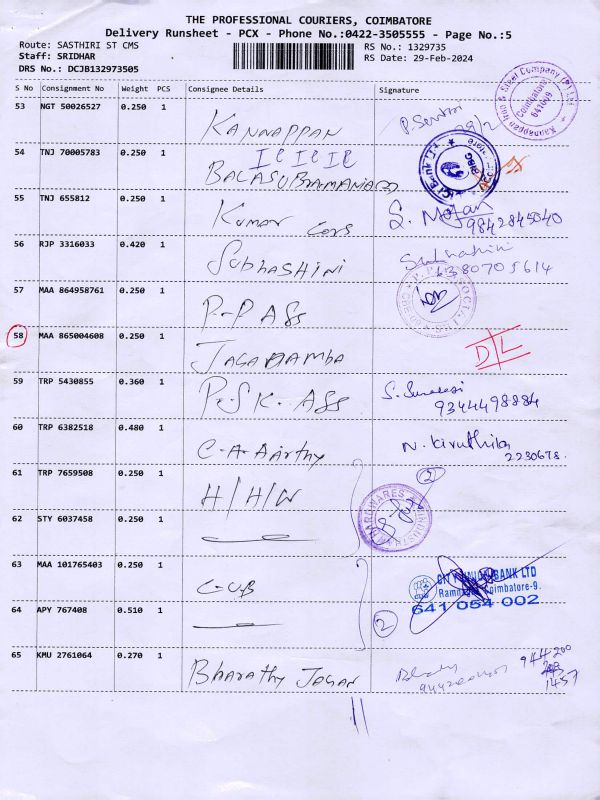 THE PROFESSIONAL COURIERS, COIMBATORE
Delivery Runsheet - PCX - Phone No.:0422-3505555 - Page No.:5
Route: SASTHIRI ST CMS RS No.: 1329735
Staff: SRIDHAR RS Date: 29-Feb-2024
DRS No.: DCJB132973505
S No Consignment No Weight PCS Consignee Details Signature
53 NGT 50026527 0.250 1 KANNAPPAN
Kannappan Iron & Steel Company (P) Ltd
Coimbatore
641009
54 TNJ 70005783 0.250 1 BALASUBRAMANIAM
55 TNJ 655812 0.250 1 Kumar Cons S. Mohan
9842845040
56 RJP 3316033 0.420 1 Subhashini
6380705614
57 MAA 864958761 0.250 1 P-P Ass
58 MAA 865004608 0.250 1 Jagadamba D/L
59 TRP 5430855 0.360 1 P.S.K. Ass
9344498884
60 TRP 6382518 0.480 1 C-A-Aarthy N. Kiruthika
2230678.
61 TRP 7659508 0.250 1 H/H/W 2
62 STY 6037458 0.250 1
63 MAA 101765403 0.250 1 C-UB
CITY UNION BANK LTD
Ramnagar, Coimbatore-9.
641 054 002
64 APY 767408 0.510 1 2
65 KMU 2761064 0.270 1 Bharathy Jagan
944 200
1457